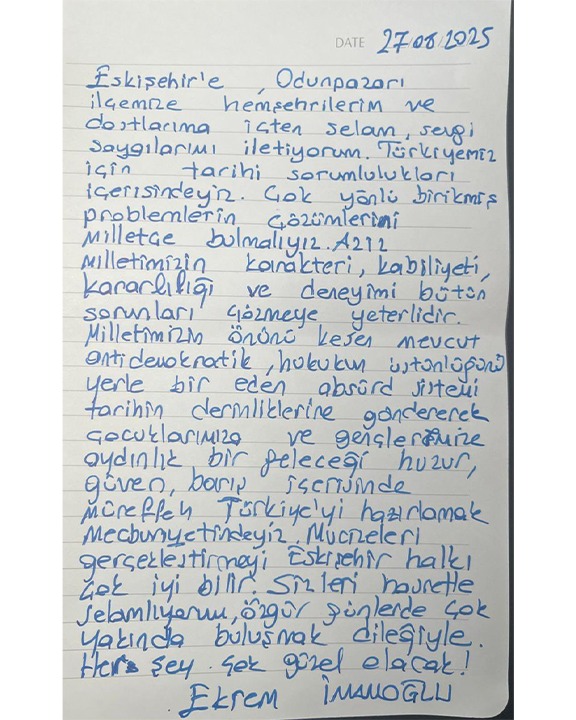 DATE 27.08.2025
Eskişehir'e, Odunpazarı
ilçemize hemşehrilerim ve
dostlarıma içten selam, sevgi
saygılarımı iletiyorum. Türkiyemiz
için tarihi sorumlulukları
içerisindeyiz. Çok yönlü birikmiş
problemlerin çözümlerini
Milletçe bulmalıyız. Aziz
Milletimizin karakteri, kabiliyeti,
kararlılığı ve deneyimi bütün
sorunları çözmeye yeterlidir.
Milletimizin önünü kesen mevcut
antidemokratik, hukukun üstünlüğünü
yerle bir eden absürd sistemi
tarihin derinliklerine göndererek
çocuklarımıza ve gençlerimize
aydınlık bir geleceği huzur,
güven, barış içerisinde
müreffeh Türkiye'yi hazırlamak
Mecburiyetindeyiz. Mucizeleri
gerçekleştirmeyi Eskişehir halkı
çok iyi bilir. Sizleri hasretle
selamlıyorum, özgür günlerde çok
yakında buluşmak dileğiyle.
Her şey çok güzel olacak!
Ekrem İMAMOĞLU